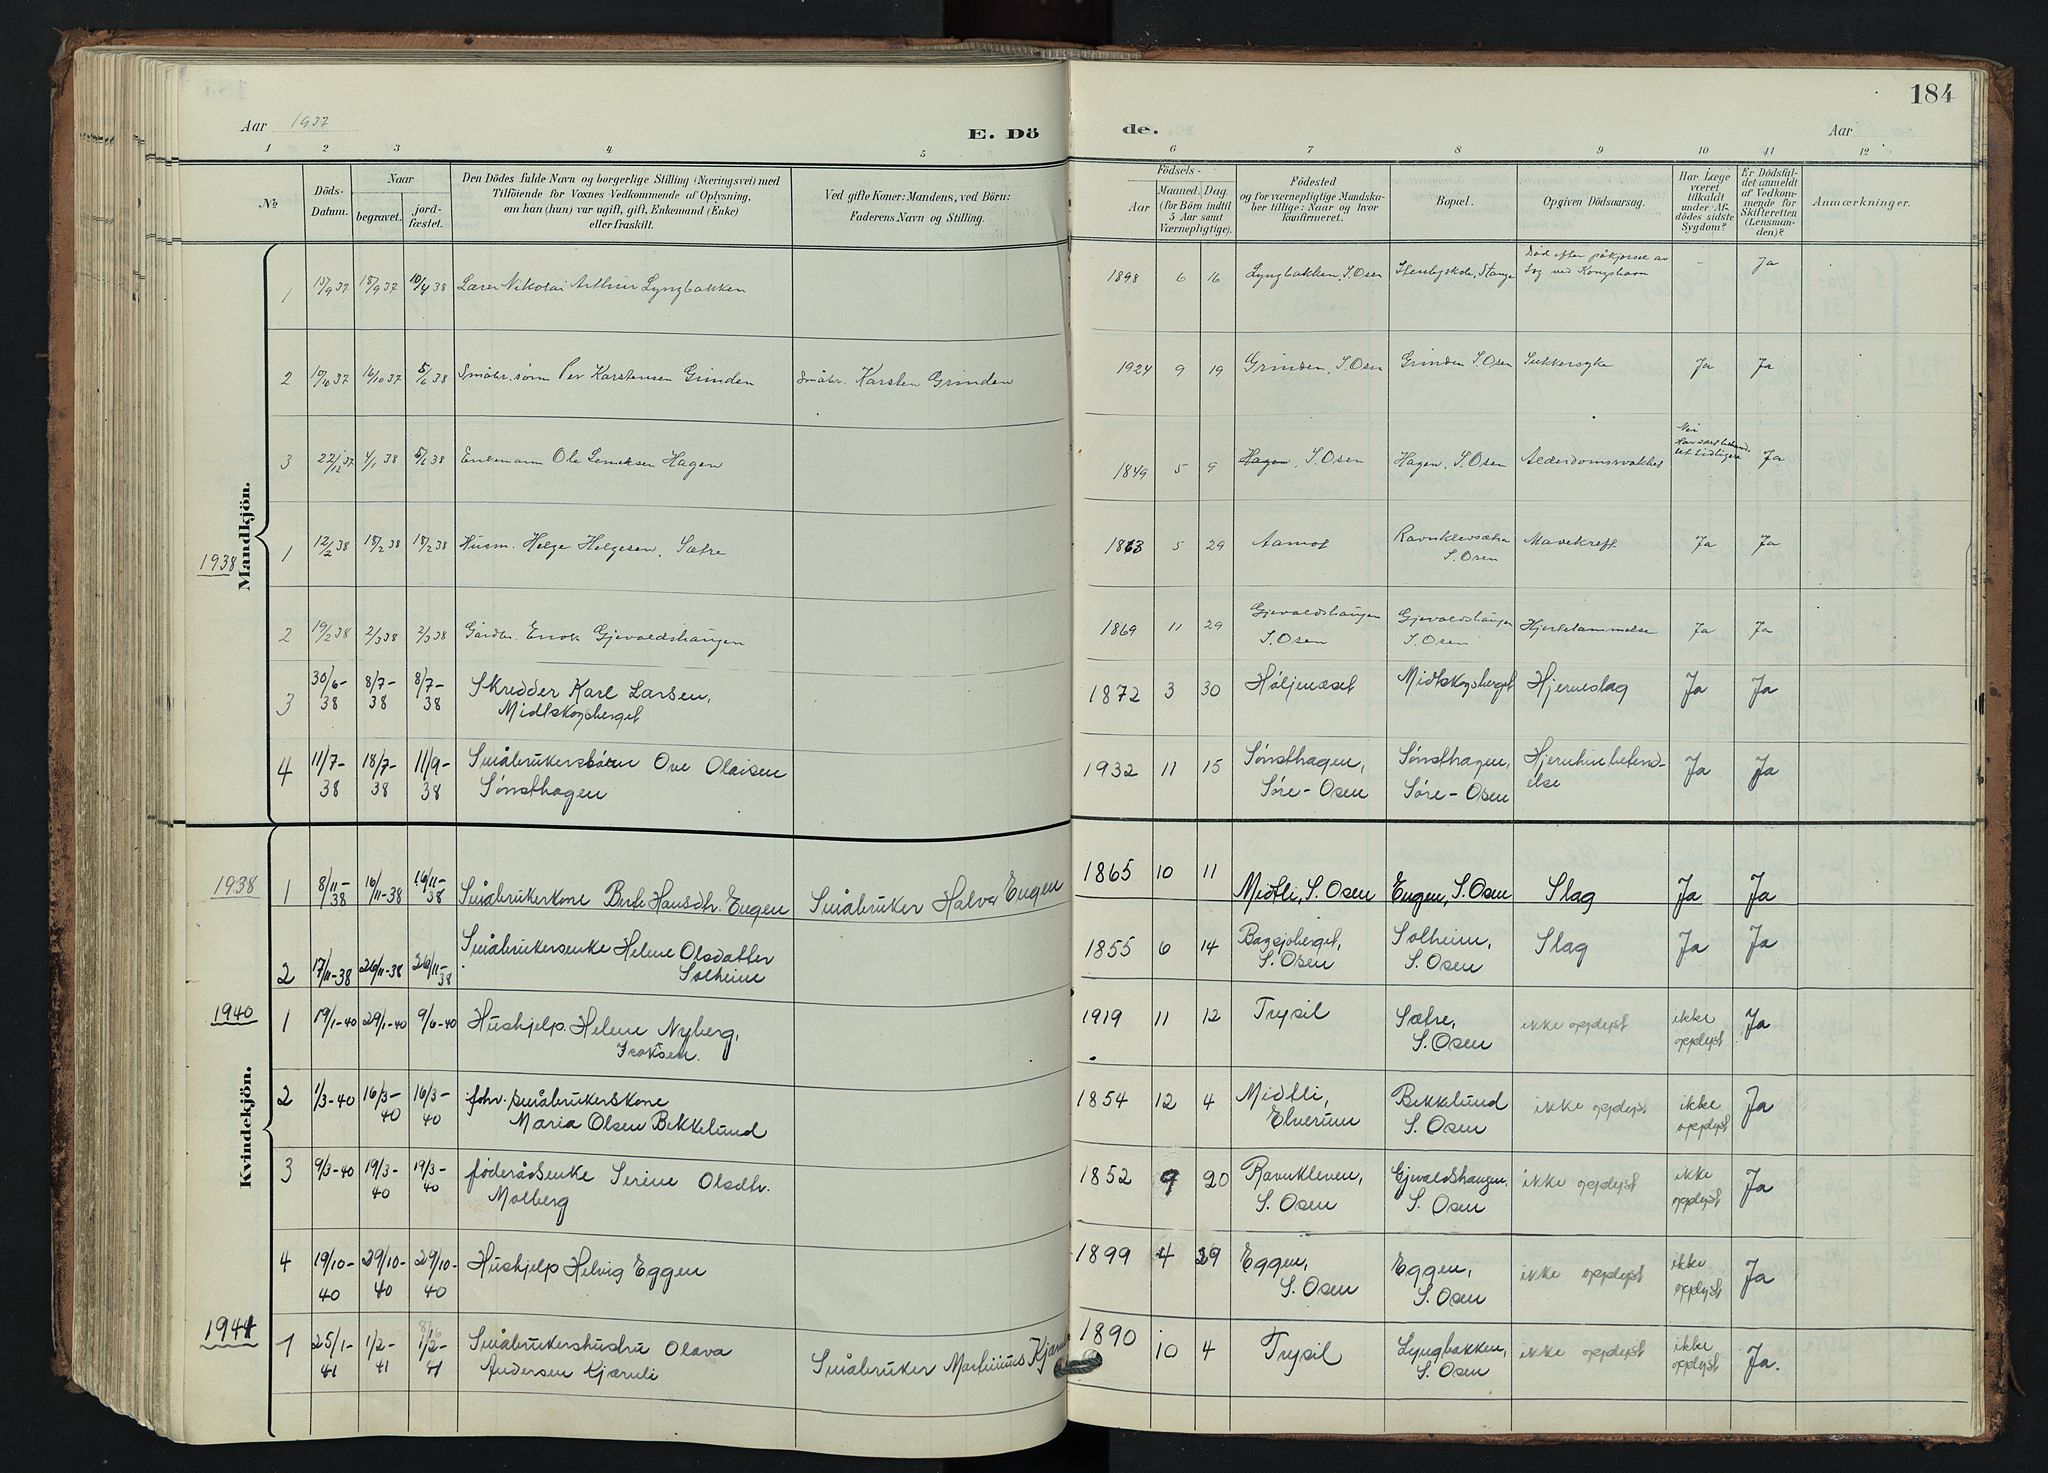 184
Aar 1937
E. Dö
de.
Aar
1 2 3 4 5 6 7 8 9 10 11 12
№
Döds-
Datum.
Naar
begravet.
jord-
fæstet.
Den Dödes fulde Navn og borgerlige Stilling (Næringsvei) med
Tilföiende for Voxnes Vedkommende af Oplysning,
om han (hun) var ugift, gift, Enkemand (Enke)
eller fraskilt.
Ved gifte Koner: Mandens, ved Börn:
Faderens Navn og Stilling.
Födsels-
Aar
Maaned. Dag.
(for Börn indtil
5 Aar samt
Værnepligtige).
Födested
og for værnepligtige Mandska-
ber tillige: Naar og hvor
konfirmeret.
Bopæl.
Opgiven Dödsaarsag.
Har Læge
været
tilkaldt
under Af-
dödes sidste
Sygdom?
Er Dödsfal-
det anmeldt
af Vedkom-
mende for
Skifteretten
(Lensman-
den)?
Anmærkninger.
Mandkjön.
1 15/9 37 18/9 37 10/4 38 Lærer Nikolai Arthur Lyngbakken 1898 6 16 Lyngbakken, S. Osen Stenbyskole, Stange Død efter påkjørsel av
tog ved Kemphavn - Ja
2 10/10 37 16/10 37 5/6 38 Småbr. sønn Per Karstensen Grinden Småbr. Karsten Grinden 1924 9 19 Grinden, S. Osen Grinden S. Osen Sukkersyke Ja Ja
3 22/12 37 4/1 38 5/6 38 Enkemann Ole Hagen 1849 5 9 Hagen, S. Osen Hagen, S. Osen Alderdomssvakhet Nei
tidligere Ja
1938
1 12/2 38 18/2 38 18/2 38 Husm. Helge Helgesen, Sætre 1863 5 29 Aamot Ravnklevsætra
S. Osen Mavekreft Ja Ja
2 19/2 38 2/3 38 2/3 38 Gårdbr. Enok Gjevaldshaugen 1869 11 29 Gjevaldshaugen
S. Osen Gjevaldshaugen
S. Osen Hjertelammelse Ja Ja
3 30/6-
38 8/7-
38 8/7-
38 Skredder Karl Larsen,
Midtskogsberget 1872 3 30 Høljenæset Midtskogsberget Hjerneslag Ja Ja
4 11/7-
38 18/7-
38 11/9-
38 Småbrukersbarn Ove Olaisen
Sønsthagen 1932 11 15 Sønsthagen,
Søre-Osen Sønsthagen,
Søre-Osen Hjernhinbetend-
else Ja Ja
Kvindekjön.
1938
1 8/11-
38 16/11-38 16/11-
38 Småbrukerkone Berte Hansdtr. Eugen Småbruker Halvor Eugen 1865 10 11 Midtli, S. Osen Eugen, S. Osen Slag Ja Ja
2 17/11-38 26/11-38 26/11-
38 Småbrukersenke Helene Olsdatter
Solheim 1855 6 14 Bagsjøberget,
S. Osen Solheim,
S. Osen Slag Ja Ja
1940
1 19/1-40 29/1-40 9/6-40 Hushjelp Helene Nyberg,
Isaksen. 1919 11 12 Trysil Sætre,
S. Osen ikke opplyst ikke
opplyst Ja
2 1/3-40 16/3-
40 16/3-
40 fohv. småbrukerskone
Maria Olsen Bekkelund 1854 12 4 Midtli,
Elverum Bekkelund
S. Osen ikke opplyst ikke
opplyst Ja
3 9/3-40 19/3-
40 19/3-
40 føderådsenke Serine Olsdtr.
Molberg 1852 9 20 Ravnkleven,
S. Osen Gjevaldshaugen,
S. Osen ikke opplyst ikke
opplyst Ja
4 19/10-
40 29/10-
40 29/10-
40 Hushjelp Helvig Eggen 1899 4 29 Eggen,
S. Osen Eggen,
S. Osen ikke opplyst ikke
opplyst Ja
1941
1 25/1-
41 1/2-
41 8/6
1/2-
41 Småbrukershustru Olava
Andersen Kjærnli Småbruker Martinius 1890 10 4 Trysil Lyngbakken,
S. Osen ikke opplyst ikke
opplyst Ja.